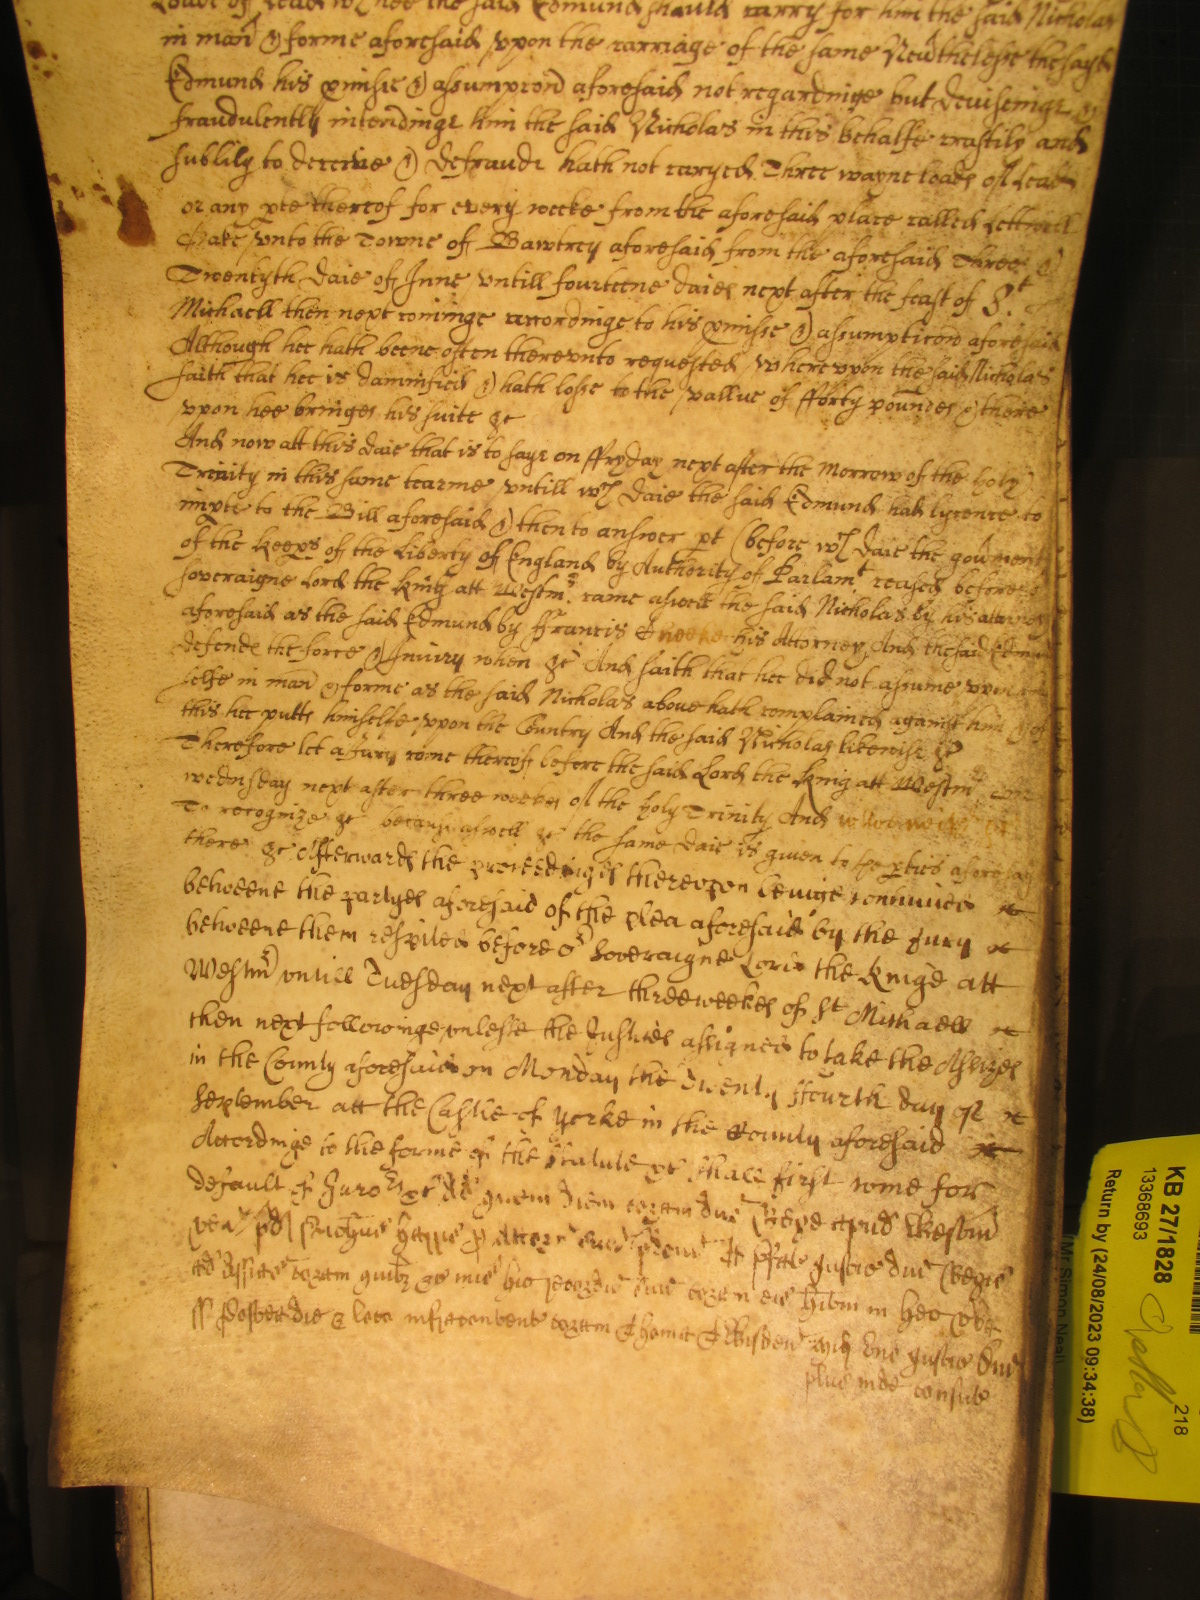 Loade of Lead wch hee the said Edmund should carry for him the said Nicholas
in man & forme aforesaid upon the carriage of the same Nevthelesse the sayd
Edmund his pmisse & assumpcon aforesaid not regardinge but deviseinge &
fraudulently intendinge him the said Nicholas in this behalfe craftily and
subtily to deceive & defraude hath not caryed Three wayne loads of Lead
or any pte thereof for every weeke from the aforesaid place called
unto the Towne of Bawtrey aforesaid from the aforesaid Three &
Twentyth daie of June untill fourteene daies next after the feast of St
Michaell then next cominge accordinge to his pmisse & assumpticon aforesaid
Although hee hath beene often thereunto requested, whereupon the said Nicholas
saith that hee is damnified & hath losse to the vallue of fforty pounds & there
upon hee bringes his suite &c
And now att this daie that is to saye on ffryday next after the Morrow of the holy
Trinity in this same tearme untill wch daie the said Edmund had lycence to
imple to the Bill aforesaid & then to answer &c (before wch daie the govment
of the Keeps of the Liberty of England by Authority of Parlamt ceased before
soveraigne Lord the King att Westmr came aswell the said Nicholas by his attorney
aforesaid as the said Edmund by ffrancis his Attorney, And the said Edmund
defende the force & Iniury when &c And saith that hee did not assume upon
selfe in man & forme as the said Nicholas above hath complained against him
this hee putts himselfe upon the Country And the said Nicholas likewise &c
Therefore let a Jury come thereof before the said Lord the King att Westmr
wednsday next after three weekes of the holy Trinity And
To recognize &c because aswell &c the same daie is given to the pties aforesayd
there &c Afterwards the proceedinges thereupon beinge continued
betweene the partyes aforesaid of the plea aforesaid by the Jury
betweene them respited before or Soveraigne Lord the Kinge att
Westmr untill Tuesday next after three weekes of St Michaell
then next followinge unlesse the Justices assigned to take the Assizes
in the County aforesaid on Monday the Twenty ffourth day of
September att the Castle of Yorke in the County aforesaid
Accordinge to the forme of the Statute &c shall first come for
default of Juro &c Ad quem diem coram dno Rege apud Westm
ven pd Nichus p Attorn suu pdcm Et pfat Justic dni Regis
ad Assisas coram quibz &c mis hic recordu suu coram eis hitm in hec vba
ss Postea die & loco infracontent coram Thoma Milit uno Justic dni
plus inde
KB 27/1828
13368693
218
Return by (24/08/2023 09:34:38)
Mr Simon Neal